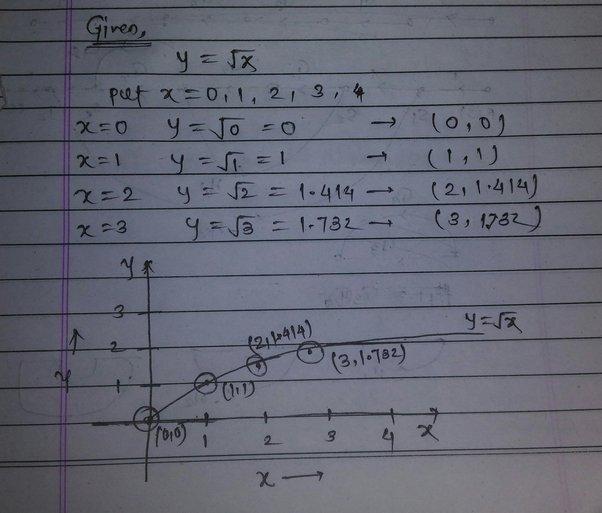 Given,
y = √x
put x = 0, 1, 2, 3, 4
x=0 y = √0 = 0 → (0,0)
x=1 y = √1 = 1 → (1,1)
x=2 y = √2 = 1.414 → (2,1.414)
x=3 y = √3 = 1.732 → (3,1732)
y
3
y=√x
2 (2,1.414) (3,1.732)
y ↑
1 (1,1)
(0,0) 1 2 3 4 x
x →